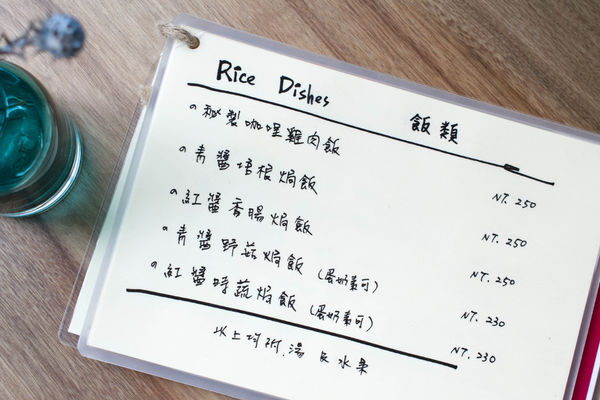 Rice Dishes 飯類
秘製咖哩雞肉飯 NT. 250
青醬培根焗飯 NT. 250
紅醬香腸焗飯 NT. 250
青醬野菇焗飯 (蛋奶素可) NT. 230
紅醬時蔬焗飯 (蛋奶素可) NT. 230
以上均附.湯 & 水果